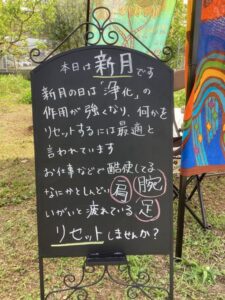 本日は新月です
新月の日は「浄化」の
作用が強くなり、何かを
リセットするには最適と
言われています
お仕事などで酷使してる
なにかとしんどい肩 腕
いがいと疲れている足
リセットしませんか?